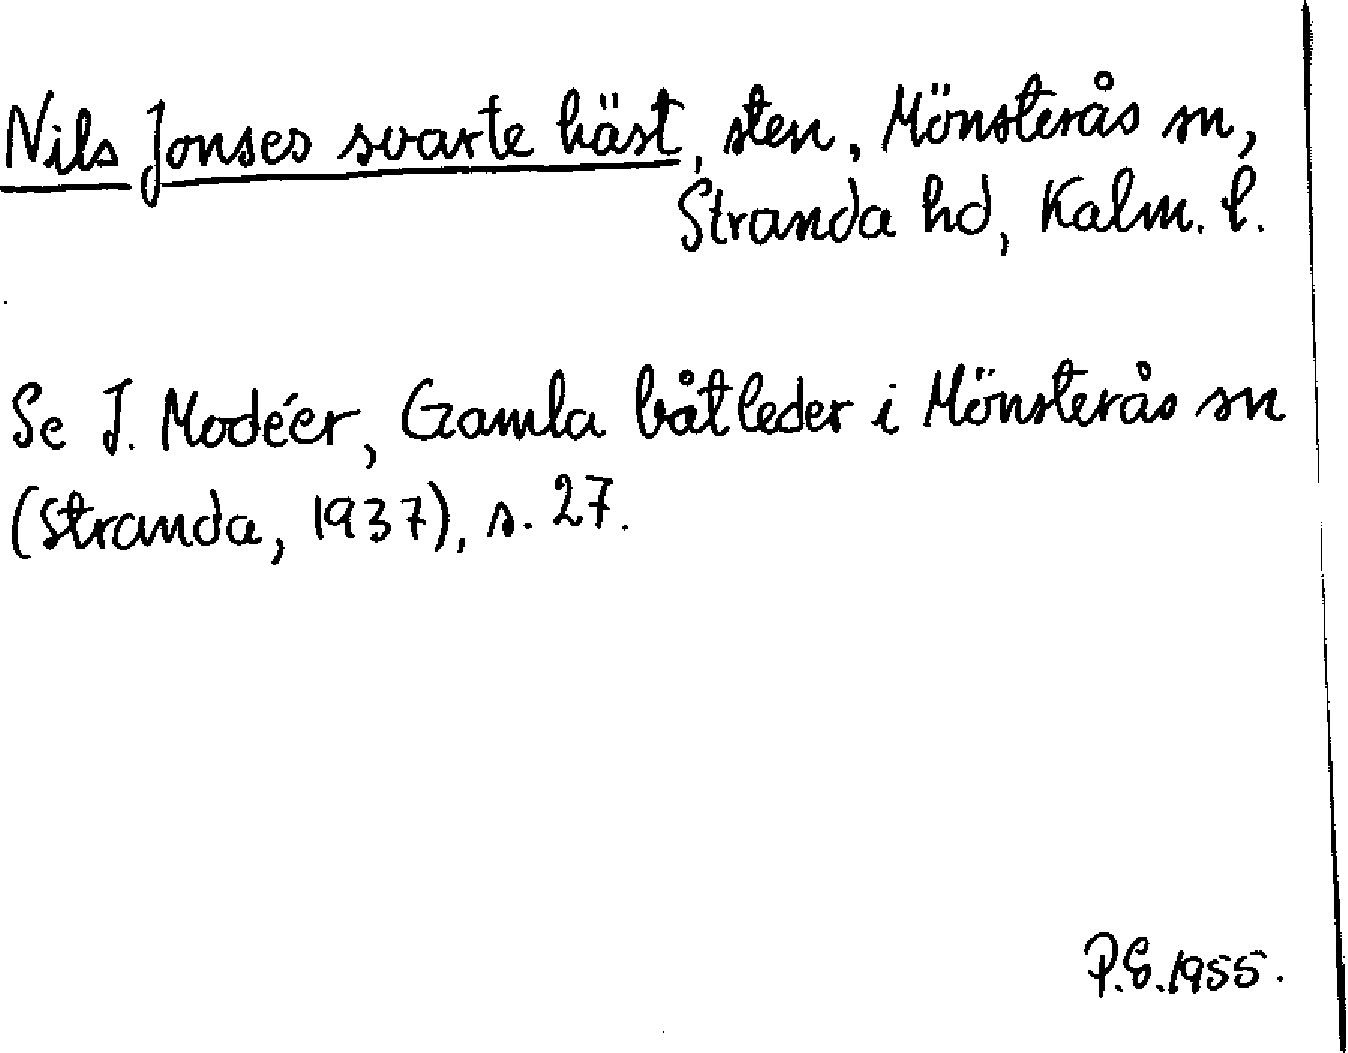 Nils Jonses svarte häst, sten, Mönsterås sn,
Stranda hd, Kalm. l.
Se I. Modéer, Gamla båtleder i Mönsterås sn
(Stranda, 1937), s. 27.
P.E. 1955.